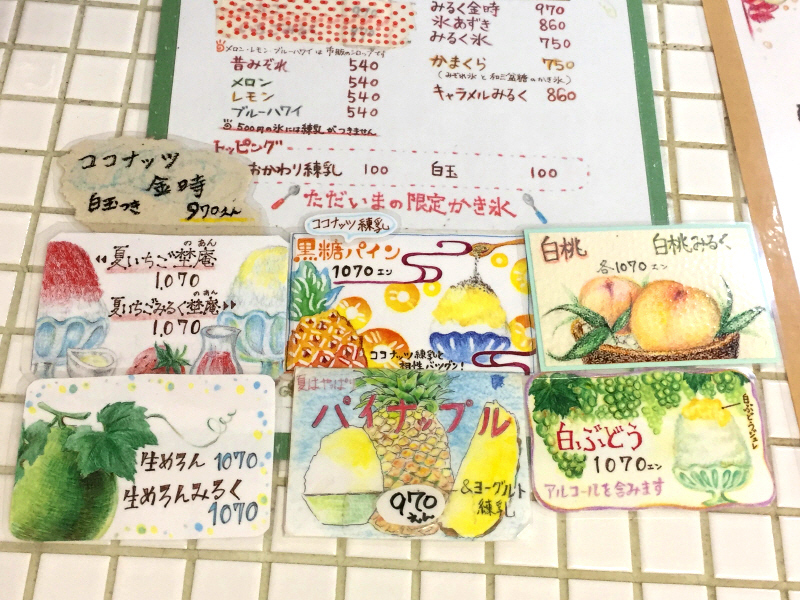 みるく金時 970
氷あずき 860
みるく氷 750
かまくら 750
(みぞれ氷と和三盆糖のかき氷)
キャラメルみるく 860
メロン・レモン・ブルーハワイは市販のシロップです
昔みぞれ 540
メロン 540
レモン 540
ブルーハワイ 540
500円の氷には練乳がつきません
トッピング
おかわり練乳 100 白玉 100
ただいまの限定かき氷
ココナッツ
金時
白玉つき 970えん
夏いちご埜庵
のあん
1,070
夏いちごみるく埜庵
のあん
1,070
ココナッツ練乳
黒糖パイン
1070エン
ココナッツ練乳と
相性バツグン!
白桃 白桃みるく
各1070エン
生めろん 1070
生めろんみるく
1070
夏はやっぱり
パイナップル
970えん
&ヨーグルト
練乳
白ぶどう
1070エン
アルコールを含みます
白ぶどうジュレ